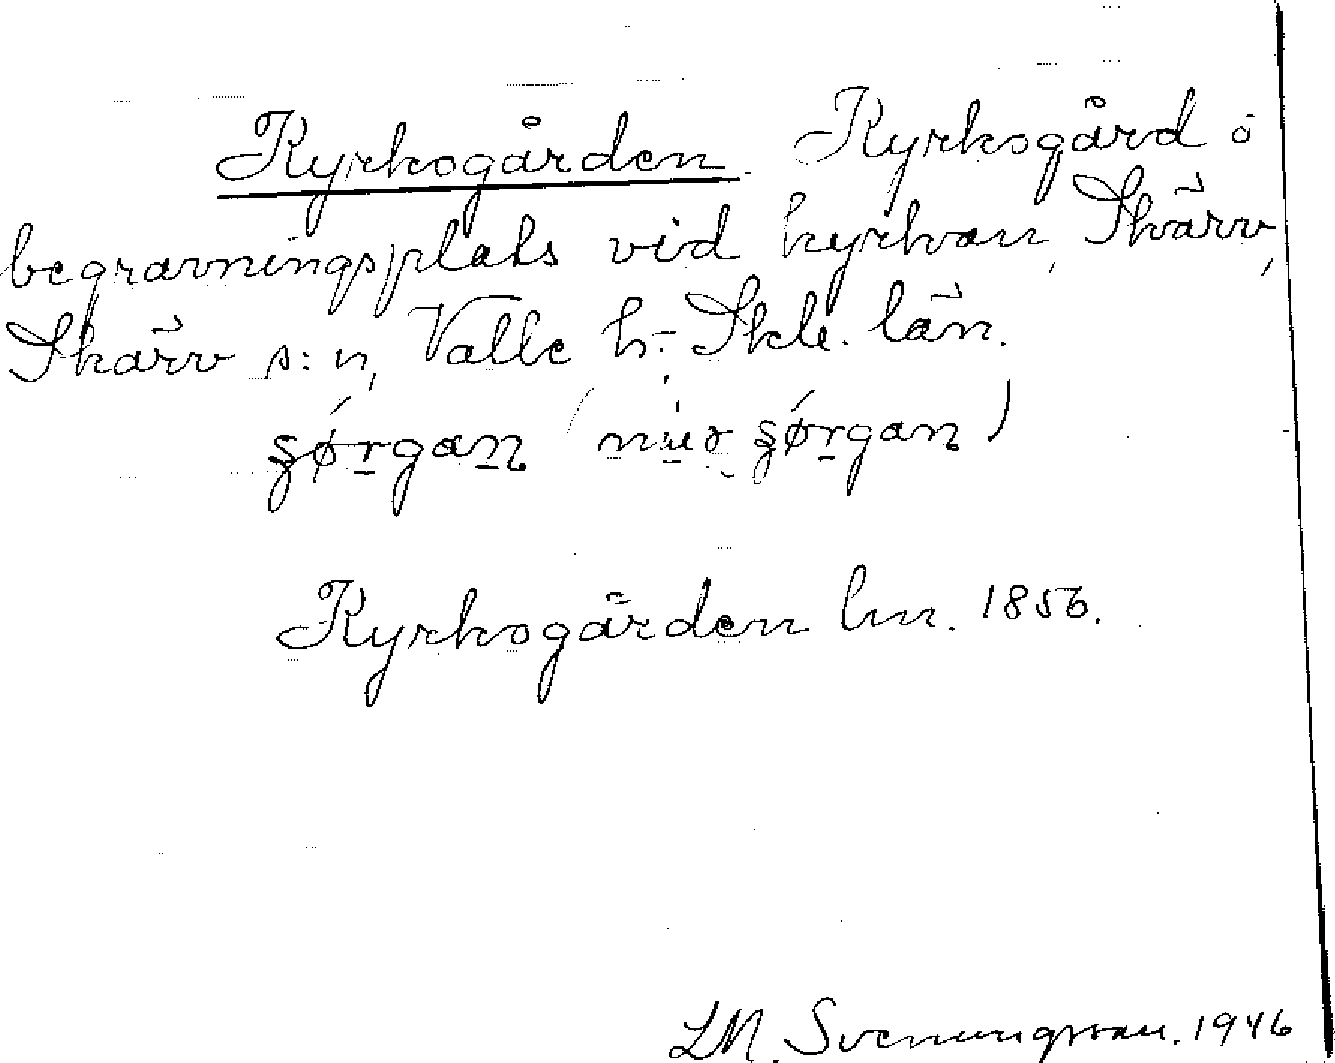 Kyrkogården. Kyrkogård o
begravningsplats vid kyrkan, Skärv,
Skärv s:n, Valle h: Skb. län.
Kyrkogården lm. 1856.
LM. Svenungsson. 1946